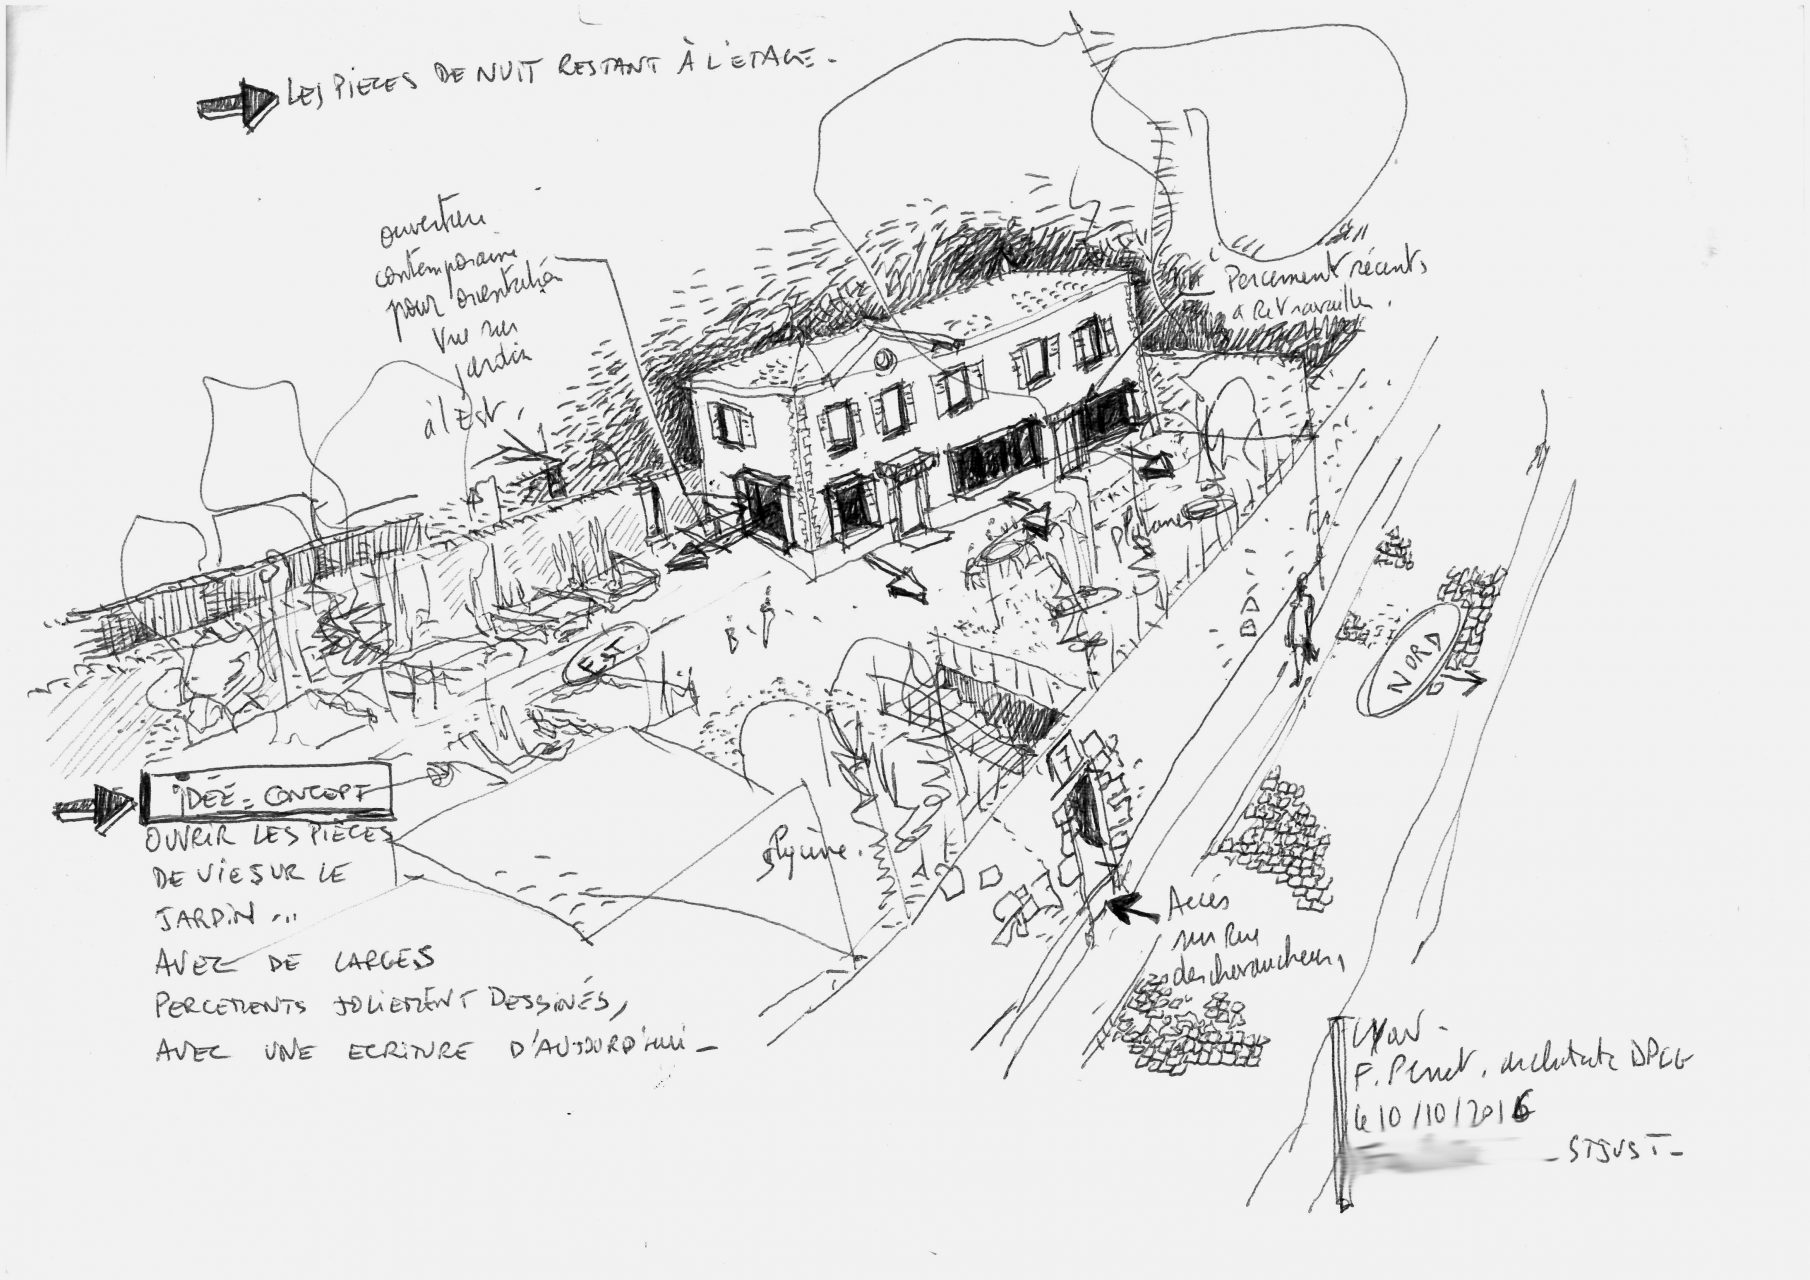 LES PIECES DE NUIT RESTANT À L'ETAGE.
ouverture
contemporaine
pour orientation
Vue sur
jardin
à l'Est.
Percement récents
à Retravailler.
Platanes
EST
NORD
IDÉE = CONCEPT
OUVRIR LES PIÈCES
DE VIE SUR LE
JARDIN ...
AVEC DE LARGES
PERCEMENTS JOLIEMENT DESSINÉS,
AVEC UNE ECRITURE D'AUJOURD'HUI -
glycine.
Accés
sur Rue
des chevaucheurs,
Lyon -
F. Perret. architecte DPLG
le 10/10/2016
- ST JUST -